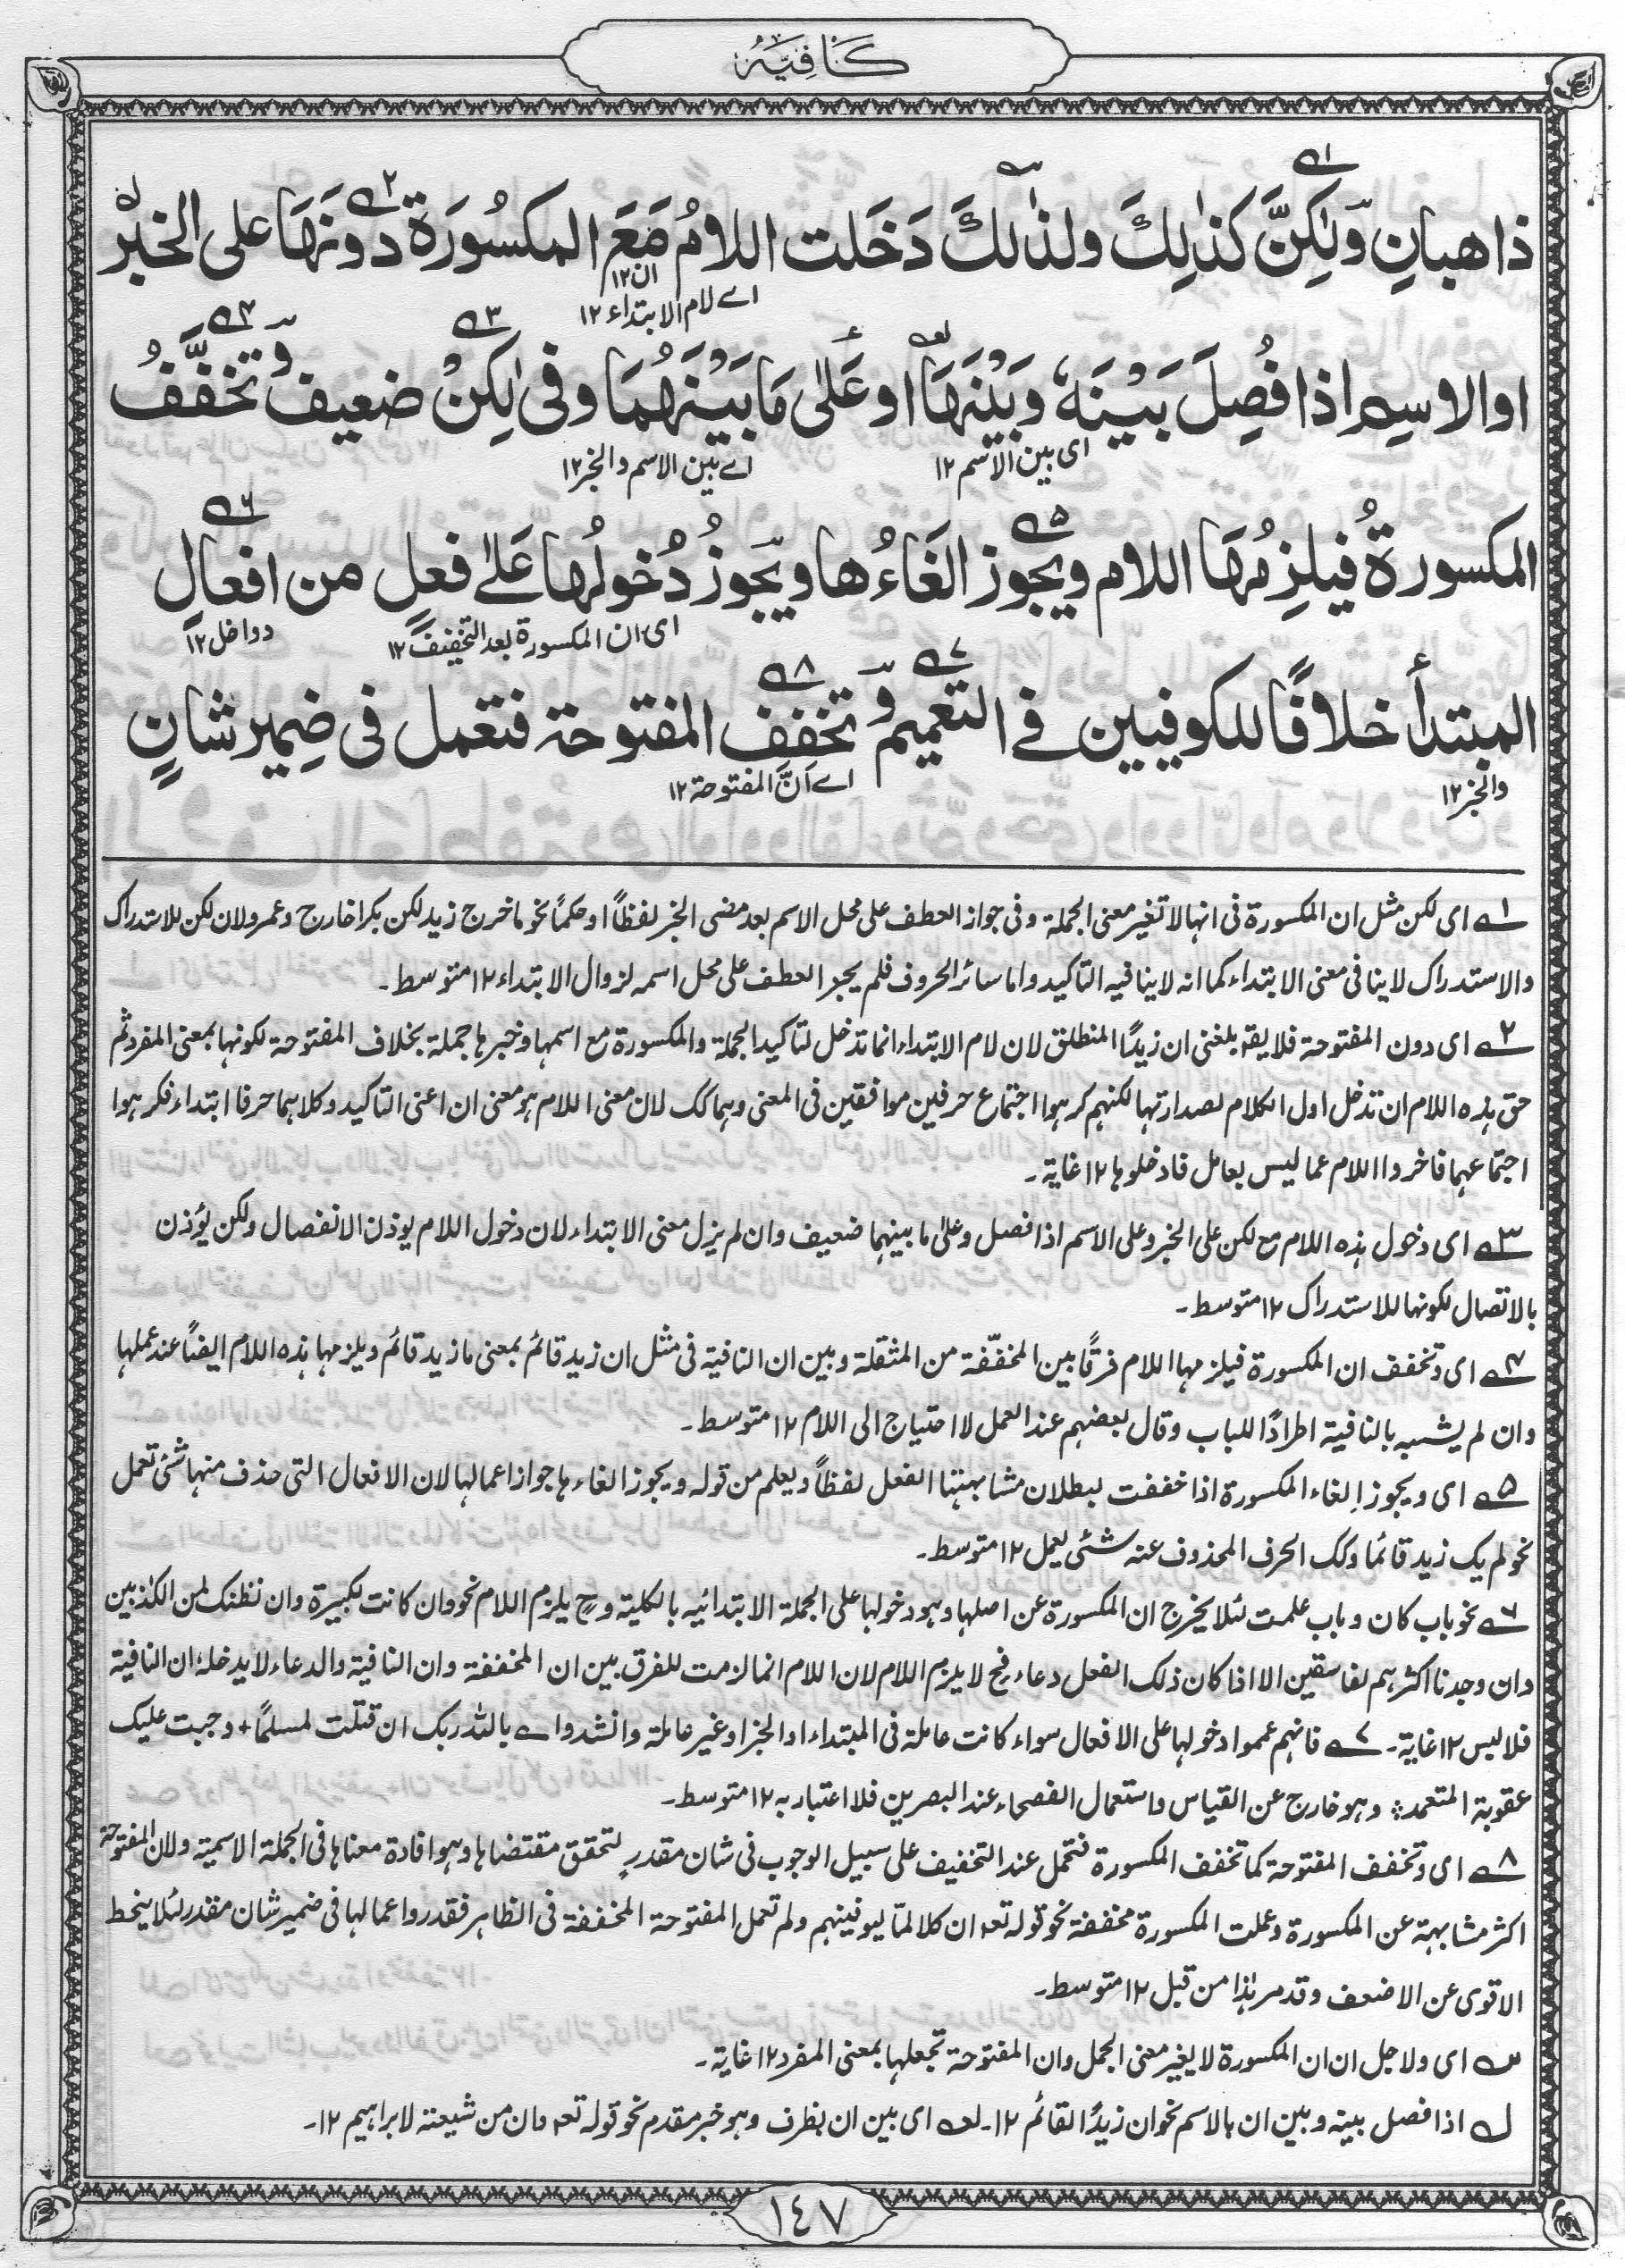 كَافِيَهْ
ذاهبانِ وَلٰكِنَّ كذٰلِكَ ولذٰلكَ دَخَلت اللامُ مَعَ المكسُورَة دونَهَا على الخبر
ان١٢
اے لام الابتداء ١٢
او الاسمِ اذا فُصِلَ بَيْنَهٗ وبَيْنَهَا او عَلىٰ مَا بَيْنَهُمَا وفى لٰكِنْ ضعيف وتخفَّفُ
اى بين الاسم ١٢
اے بين الاسم والخبر ١٢
المكسورةُ فيلزِمُهَا اللام ويجوز الغَاءُها ويجوزُ دُخولُها عَلىٰ فعلٍ من افعالِ
اى ان المكسورة بعد التخفيف ١٢
دواخل ١٢
المبتدأ خلافًا للكوفيين فے التعميم وتخفِفِ المفتوحة فتعمل فى ضِميرشانٍ
والخبر ١٢
اے اَنَّ المفتوحة ١٢
١ے اى لكن مثل ان المكسورة فى انها لا تغير معنى الجملة وفى جواز العطف على محل الاسم بعد مضى الخبر لفظاً او حكماً نحو ما خرج زيد لكن بكرا خارج وعمرو لان لكن للاستدراك
والاستدراك لا ينافى معنى الابتداء كما انه لا ينافيه التاكيد واما سائر الحروف فلم يجز العطف على محل اسمه لزوال الابتداء ١٢ متوسط۔
٢ے اى دون المفتوحة فلا يقہ بلغنى ان زيدًا المنطلق لان لام الابتداء انما تدخل لتاكيد الجملة والمكسورة مع اسمها وخبرها جملة بخلاف المفتوحة لكونها بمعنى المفرد ثم
حق ہذہ اللام ان تدخل اول الكلام لصدارتها لكنهم كرهوا اجتماع حرفين موافقين فى المعنى وهما كك لان معنى اللام هو معنى ان اعنى التاكيد وكلاهما حرفا ابتداء فكرهوا
اجتماعهما فاخروا اللام عما ليس بعامل فادخلوها ١٢ غاية۔
٣ے اى دخول ہذہ اللام مع لكن على الخبر وعلى الاسم اذا فصل وعلىٰ ما بينهما ضعيف وان لم يزل معنى الابتداء لان دخول اللام يوذن الانفصال ولكن يؤذن
بالاتصال لكونها للاستدراك ١٢ متوسط۔
٤ے اى وتخفف ان المكسورة فيلزمها اللام فرقًا بين المخفّفة من المثقلة وبين ان النافية فى مثل ان زيد قائم بمعنى ما زيد قائم ويلزمها ہذہ اللام ايضًا عند عملها
وان لم يشبه بالنافية اطرادًا للباب وقال بعضهم عند العمل لا احتياج الى اللام ١٢ متوسط۔
٥ے اى ويجوز اِلغاء المكسورة اذا خففت لبطلان مشابهتها الفعل لفظاً ويعلم من قوله ويجوز الغاءها جواز اعمالها لان الافعال التى حذف منها شئ تعمل
نحو لم يك زيد قائما وكك الحرف المحذوف عنه شئى يعمل ١٢ متوسط۔
٦ے نحو باب كان وباب علمت لئلا يخرج ان المكسورة عن اصلها وهو دخولها على الجملة الابتدائيه بالكلية وح يلزم اللام نحو وان كانت لكبيرة وان نظنك لمن الكٰذبين
وان وجدنا اكثرهم لفاسقين الا اذا كان ذلك الفعل دعاء فح لا يلزم اللام لان اللام انما لزمت للفرق بين ان المخففة وان النافية والدعاء لا يدخله ان النافية
فلا لبس ١٢ غاية۔ ٧ے فانهم عمموا دخولها على الافعال سواء كانت عاملة فى المبتداء او الخبر او غير عاملة وانشدوا ے باللہ ربك ان قتلت لمسلمًا + وجبت عليك
عقوبة المتعمد؞ وهو خارج عن القياس واستعمال الفصحاء عند البصرين فلا اعتبار به ١٢ متوسط۔
٨ے اى وتخفف المفتوحة كما تخفف المكسورة فتحمل عند التخفيف على سبيل الوجوب فى شان مقدرٍ لتحقق مقتضاها وهو افادة معناها فى الجملة الاسمية ولان المفتوحة
اكثر مشابهة عن المكسورة وعملت المكسورة مخففة نحو قوله تعہ ان كلا لمّا ليوفينهم ولم تعمل المفتوحة المخففة فى الظاهر فقدروا اعمالها فى ضمير شان مقدر لئلا ينحط
الاقوى عن الاضعف وقد مر ہٰذا من قبل ١٢ متوسط۔
سے اى ولاجل ان ان المكسورة لا يغير معنى الجمل وان المفتوحة تجعلها بمعنى المفرد ١٢ غاية۔
لے اذا فصل بينه وبين ان بالاسم نحو ان زيدًا لقائم ١٢۔ لعہ اى بين ان بظرف وهو خبر مقدم نحو قوله تعہ وان من شيعته لابراهيم ١٢۔
١٤٧